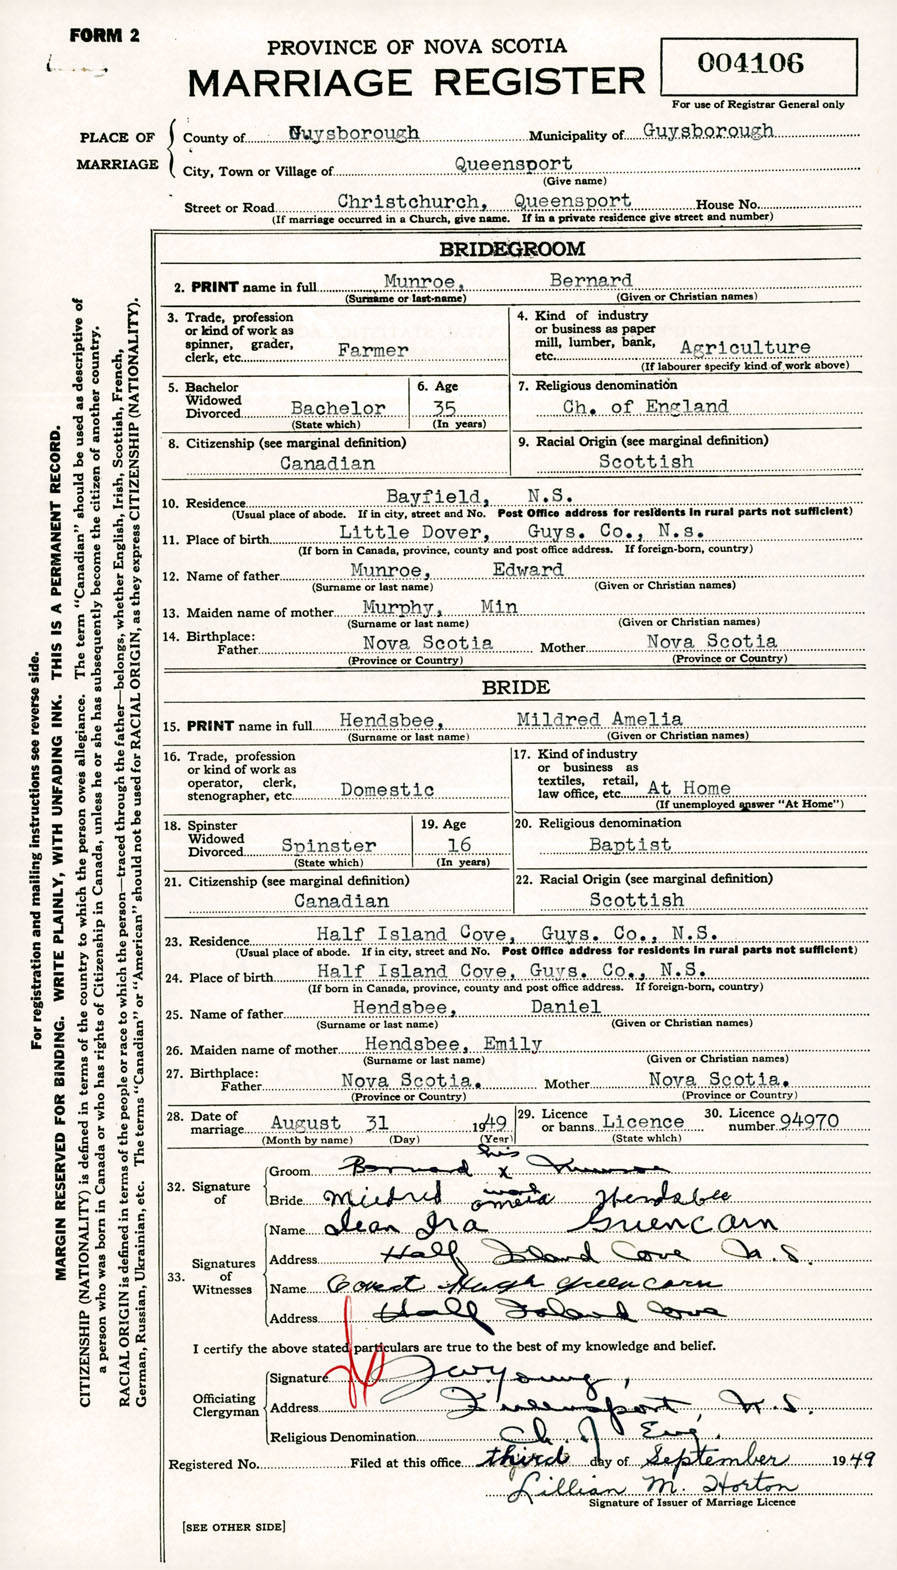 FORM 2
PROVINCE OF NOVA SCOTIA
MARRIAGE REGISTER
004106
For use of Registrar General only
PLACE OF MARRIAGE
County of Guysborough Municipality of Guysborough
City, Town or Village of Queensport
(Give name)
Street or Road Christchurch, Queensport House No.
(If marriage occurred in a Church, give name. If in a private residence give street and number)
BRIDEGROOM
2. PRINT name in full Munroe, Bernard
(Surname or last name) (Given or Christian names)
3. Trade, profession or kind of work as spinner, grader, clerk, etc. Farmer
4. Kind of industry or business as paper mill, lumber, bank, etc. Agriculture
(If labourer specify kind of work above)
5. Bachelor Widowed Divorced Bachelor
(State which)
6. Age 35
(In years)
7. Religious denomination
Ch. of England
8. Citizenship (see marginal definition)
Canadian
9. Racial Origin (see marginal definition)
Scottish
10. Residence Bayfield, N.S.
(Usual place of abode. If in city, street and No. Post Office address for residents in rural parts not sufficient)
11. Place of birth Little Dover, Guys. Co., N.s.
(If born in Canada, province, county and post office address. If foreign-born, country)
12. Name of father Munroe, Edward
(Surname or last name) (Given or Christian names)
13. Maiden name of mother Murphy, Min
(Surname or last name) (Given or Christian names)
14. Birthplace:
Father Nova Scotia Mother Nova Scotia
(Province or Country) (Province or Country)
BRIDE
15. PRINT name in full Hendsbee, Mildred Amelia
(Surname or last name) (Given or Christian names)
16. Trade, profession or kind of work as operator, clerk, stenographer, etc. Domestic
17. Kind of industry or business as textiles, retail, law office, etc. At Home
(If unemployed answer "At Home")
18. Spinster Widowed Divorced Spinster
(State which)
19. Age 16
(In years)
20. Religious denomination
Baptist
21. Citizenship (see marginal definition)
Canadian
22. Racial Origin (see marginal definition)
Scottish
23. Residence Half Island Cove, Guys. Co., N.S.
(Usual place of abode. If in city, street and No. Post Office address for residents in rural parts not sufficient)
24. Place of birth Half Island Cove, Guys. Co., N.S.
(If born in Canada, province, county and post office address. If foreign-born, country)
25. Name of father Hendsbee, Daniel
(Surname or last name) (Given or Christian names)
26. Maiden name of mother Hendsbee, Emily
(Surname or last name) (Given or Christian names)
27. Birthplace:
Father Nova Scotia. Mother Nova Scotia.
(Province or Country) (Province or Country)
28. Date of marriage August 31 1949
(Month by name) (Day) (Year)
29. Licence or banns Licence
(State which)
30. Licence number 94970
32. Signature of
his
Groom Bernard x Munroe
mark
Bride Mildred Amelia Hendsbee
33. Signatures of Witnesses
Name Ira
Address Half Island Cove N.S.
Name Hugh Greencorn
Address Half Island Cove
I certify the above stated particulars are true to the best of my knowledge and belief.
Officiating Clergyman
Signature Young,
Address Queensport, N.S.
Religious Denomination Ch. of Eng.
Registered No. Filed at this office third day of September 1949
Lillian M. Horton
Signature of Issuer of Marriage Licence
[SEE OTHER SIDE]
For registration and mailing instructions see reverse side.
MARGIN RESERVED FOR BINDING. WRITE PLAINLY, WITH UNFADING INK. THIS IS A PERMANENT RECORD.
CITIZENSHIP (NATIONALITY) is defined in terms of the country to which the person owes allegiance. The term "Canadian" should be used as descriptive of
a person who was born in Canada or who has rights of Citizenship in Canada, unless he or she has subsequently become the citizen of another country.
RACIAL ORIGIN is defined in terms of the people or race to which the person—traced through the father—belongs, whether English, Irish, Scottish, French,
German, Russian, Ukrainian, etc. The terms "Canadian" or "American" should not be used for RACIAL ORIGIN, as they express CITIZENSHIP (NATIONALITY).